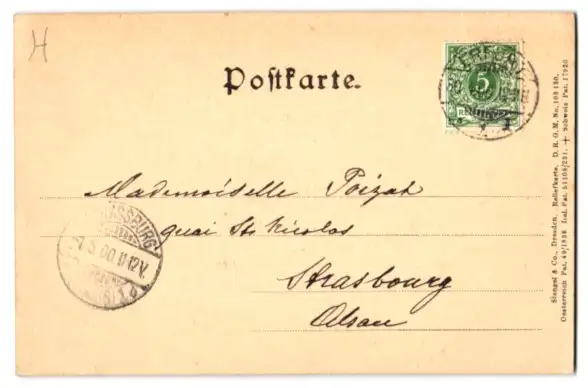 H
Postkarte.
5
Mademoiselle Poizat
quai St Nicolas
Strasbourg
Alsace
7.5.00 11-12V.
Stengel & Co., Dresden. Reliefkarte. D. R. G. M. No. 108130.
Oesterreich Pat. 49/1838 Ind. Pat. 51108/231. + Schweiz Pat. 17920